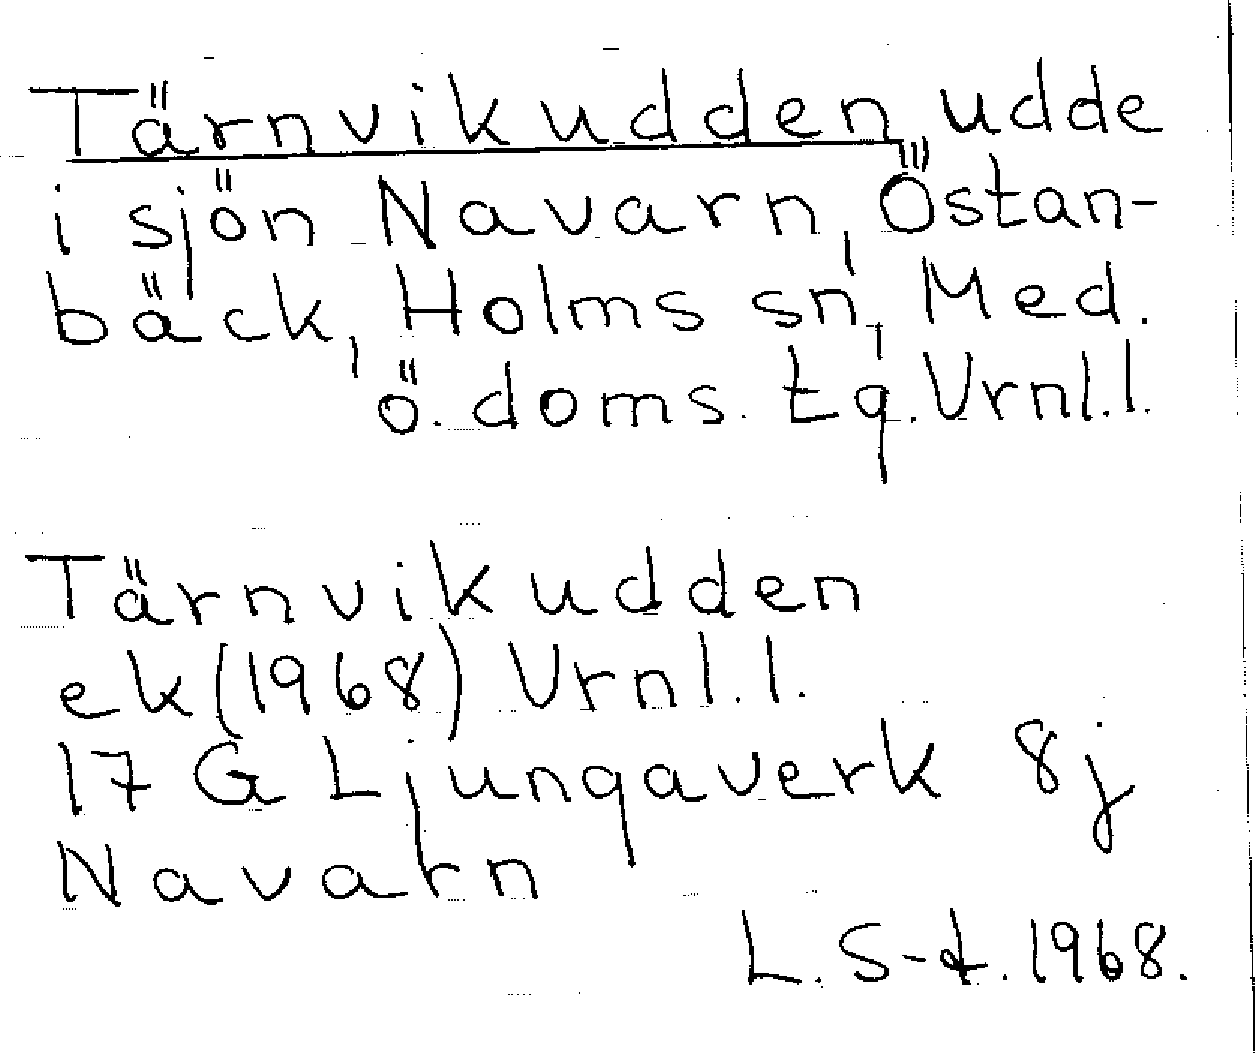 Tärnvikudden, udde
i sjön Navarn, Östan-
bäck, Holms sn, Med.
ö. doms. tg. Vrnl.l.
Tärnvikudden
ek (1968) Vrnl.l.
17 G Ljungaverk 8j
Navarn
L. S-d. 1968.